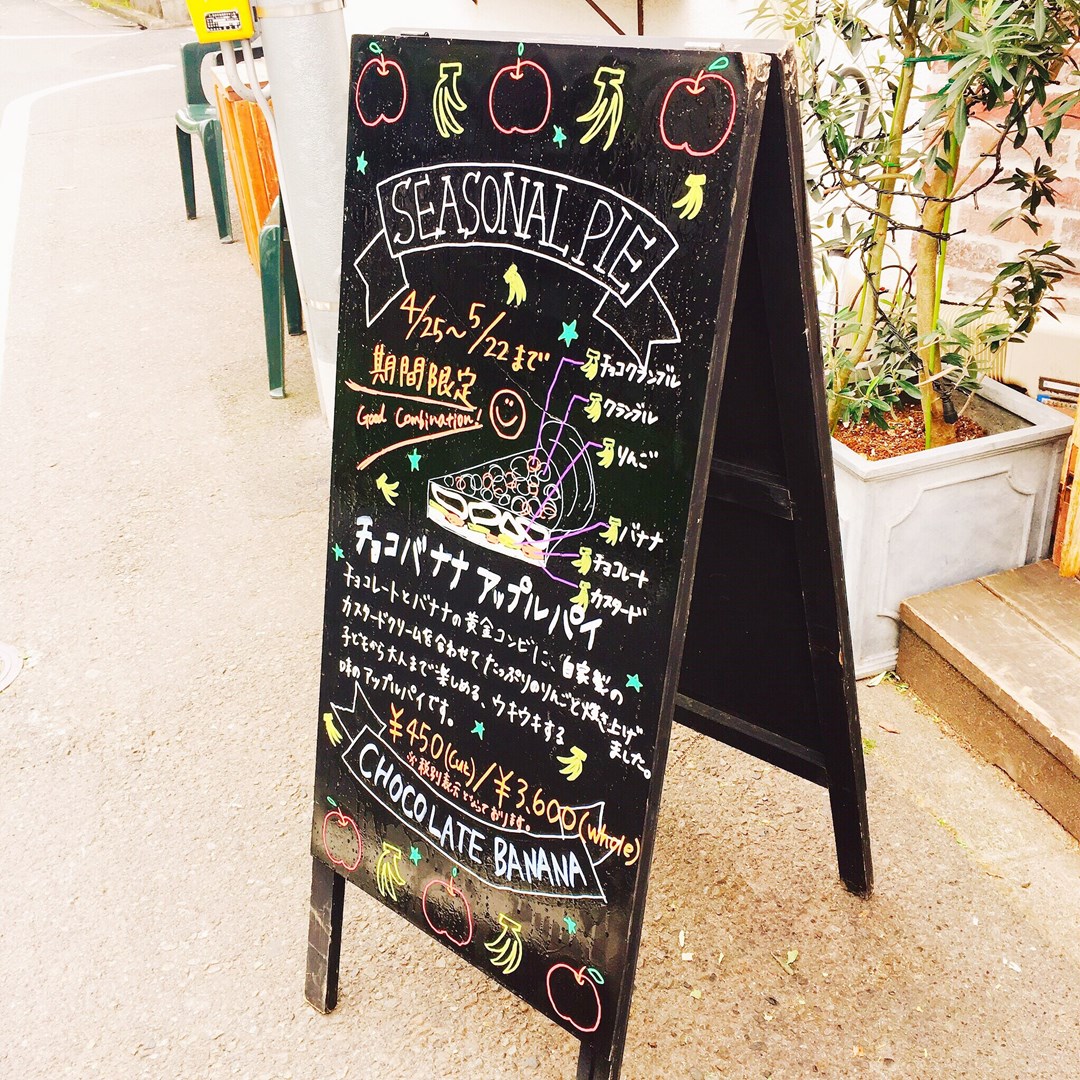 SEASONAL PIE
4/25〜5/22まで
期間限定
Good Combination!
チョコクランブル
クランブル
りんご
バナナ
チョコレート
カスタード
チョコバナナアップルパイ
チョコレートとバナナの黄金コンビに、自家製の
カスタードクリームを合わせてたっぷりのりんごと焼き上げました。
子どもから大人まで楽しめる、ウキウキする
味のアップルパイです。
¥450(cut)/¥3,600(whole)
※税別表示となっております。
CHOCOLATE BANANA